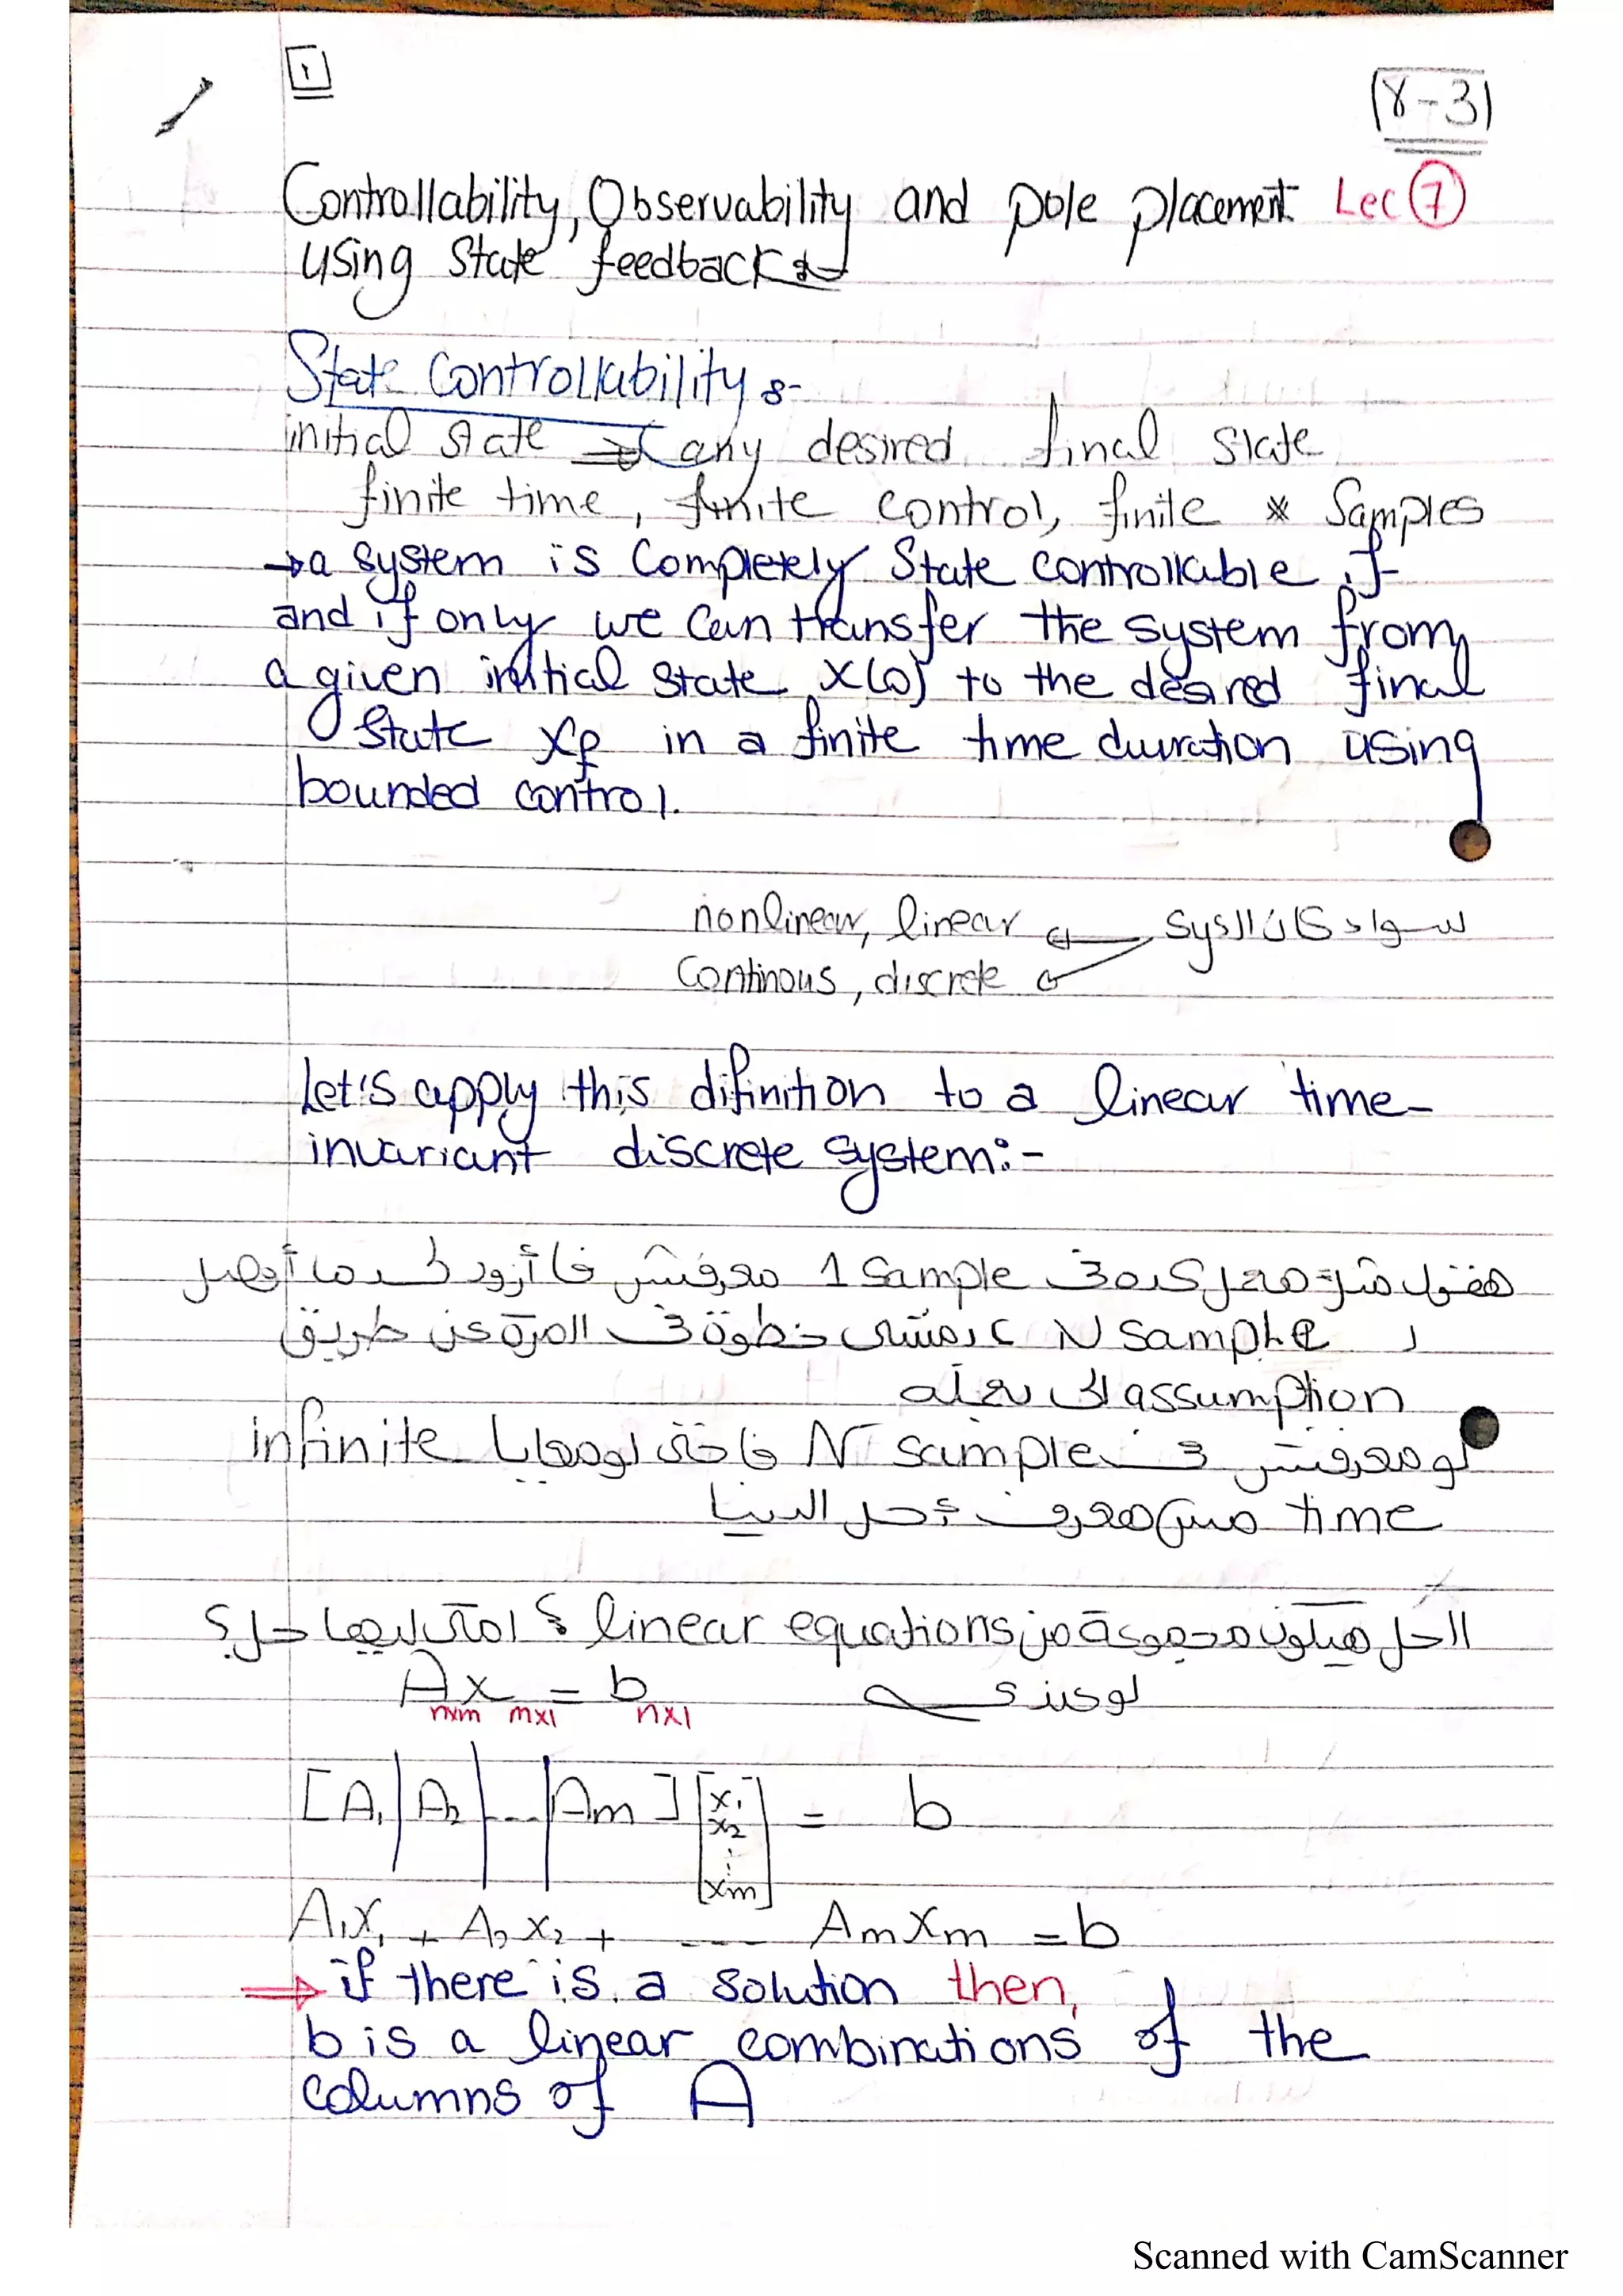 ١
8-3
Controllability, Observability and pole placement Lec 7
using State feedback
State Controllability :-
initial state → any desired final state
finite time, finite control, finite * samples
→ a system is Completely State controllable if
and if only we can transfer the system from
a given initial state X(0) to the desired final
state Xf in a finite time duration using
bounded control.
سواء كان الـ sys → nonlinear, linear
→ Continous, discrete
Let's apply this difinition to a linear time-
invariant discrete system:-
هنقول مش هحل كده في 1 sample معرفتش فأزود لحد ما أوصل
لـ N sample همشي خطوة في المرة عن طريق
assumption الى بحله
لو معرفتش في N sample فا حتى لو معايا infinite
time مش هعرف أحل
الحل هيكون مجموعة من linear equations ؟ امتى ليها حل؟
لو عندي
Ax = b
nxm mx1 nx1
[A1 | A2 | ... | Am] [x1 x2 ⋮ xm] = b
A1x1 + A2x2 + ---- Amxm = b
⇒ if there is a solution then,
b is a linear combinations of the
columns of A
Scanned with CamScanner